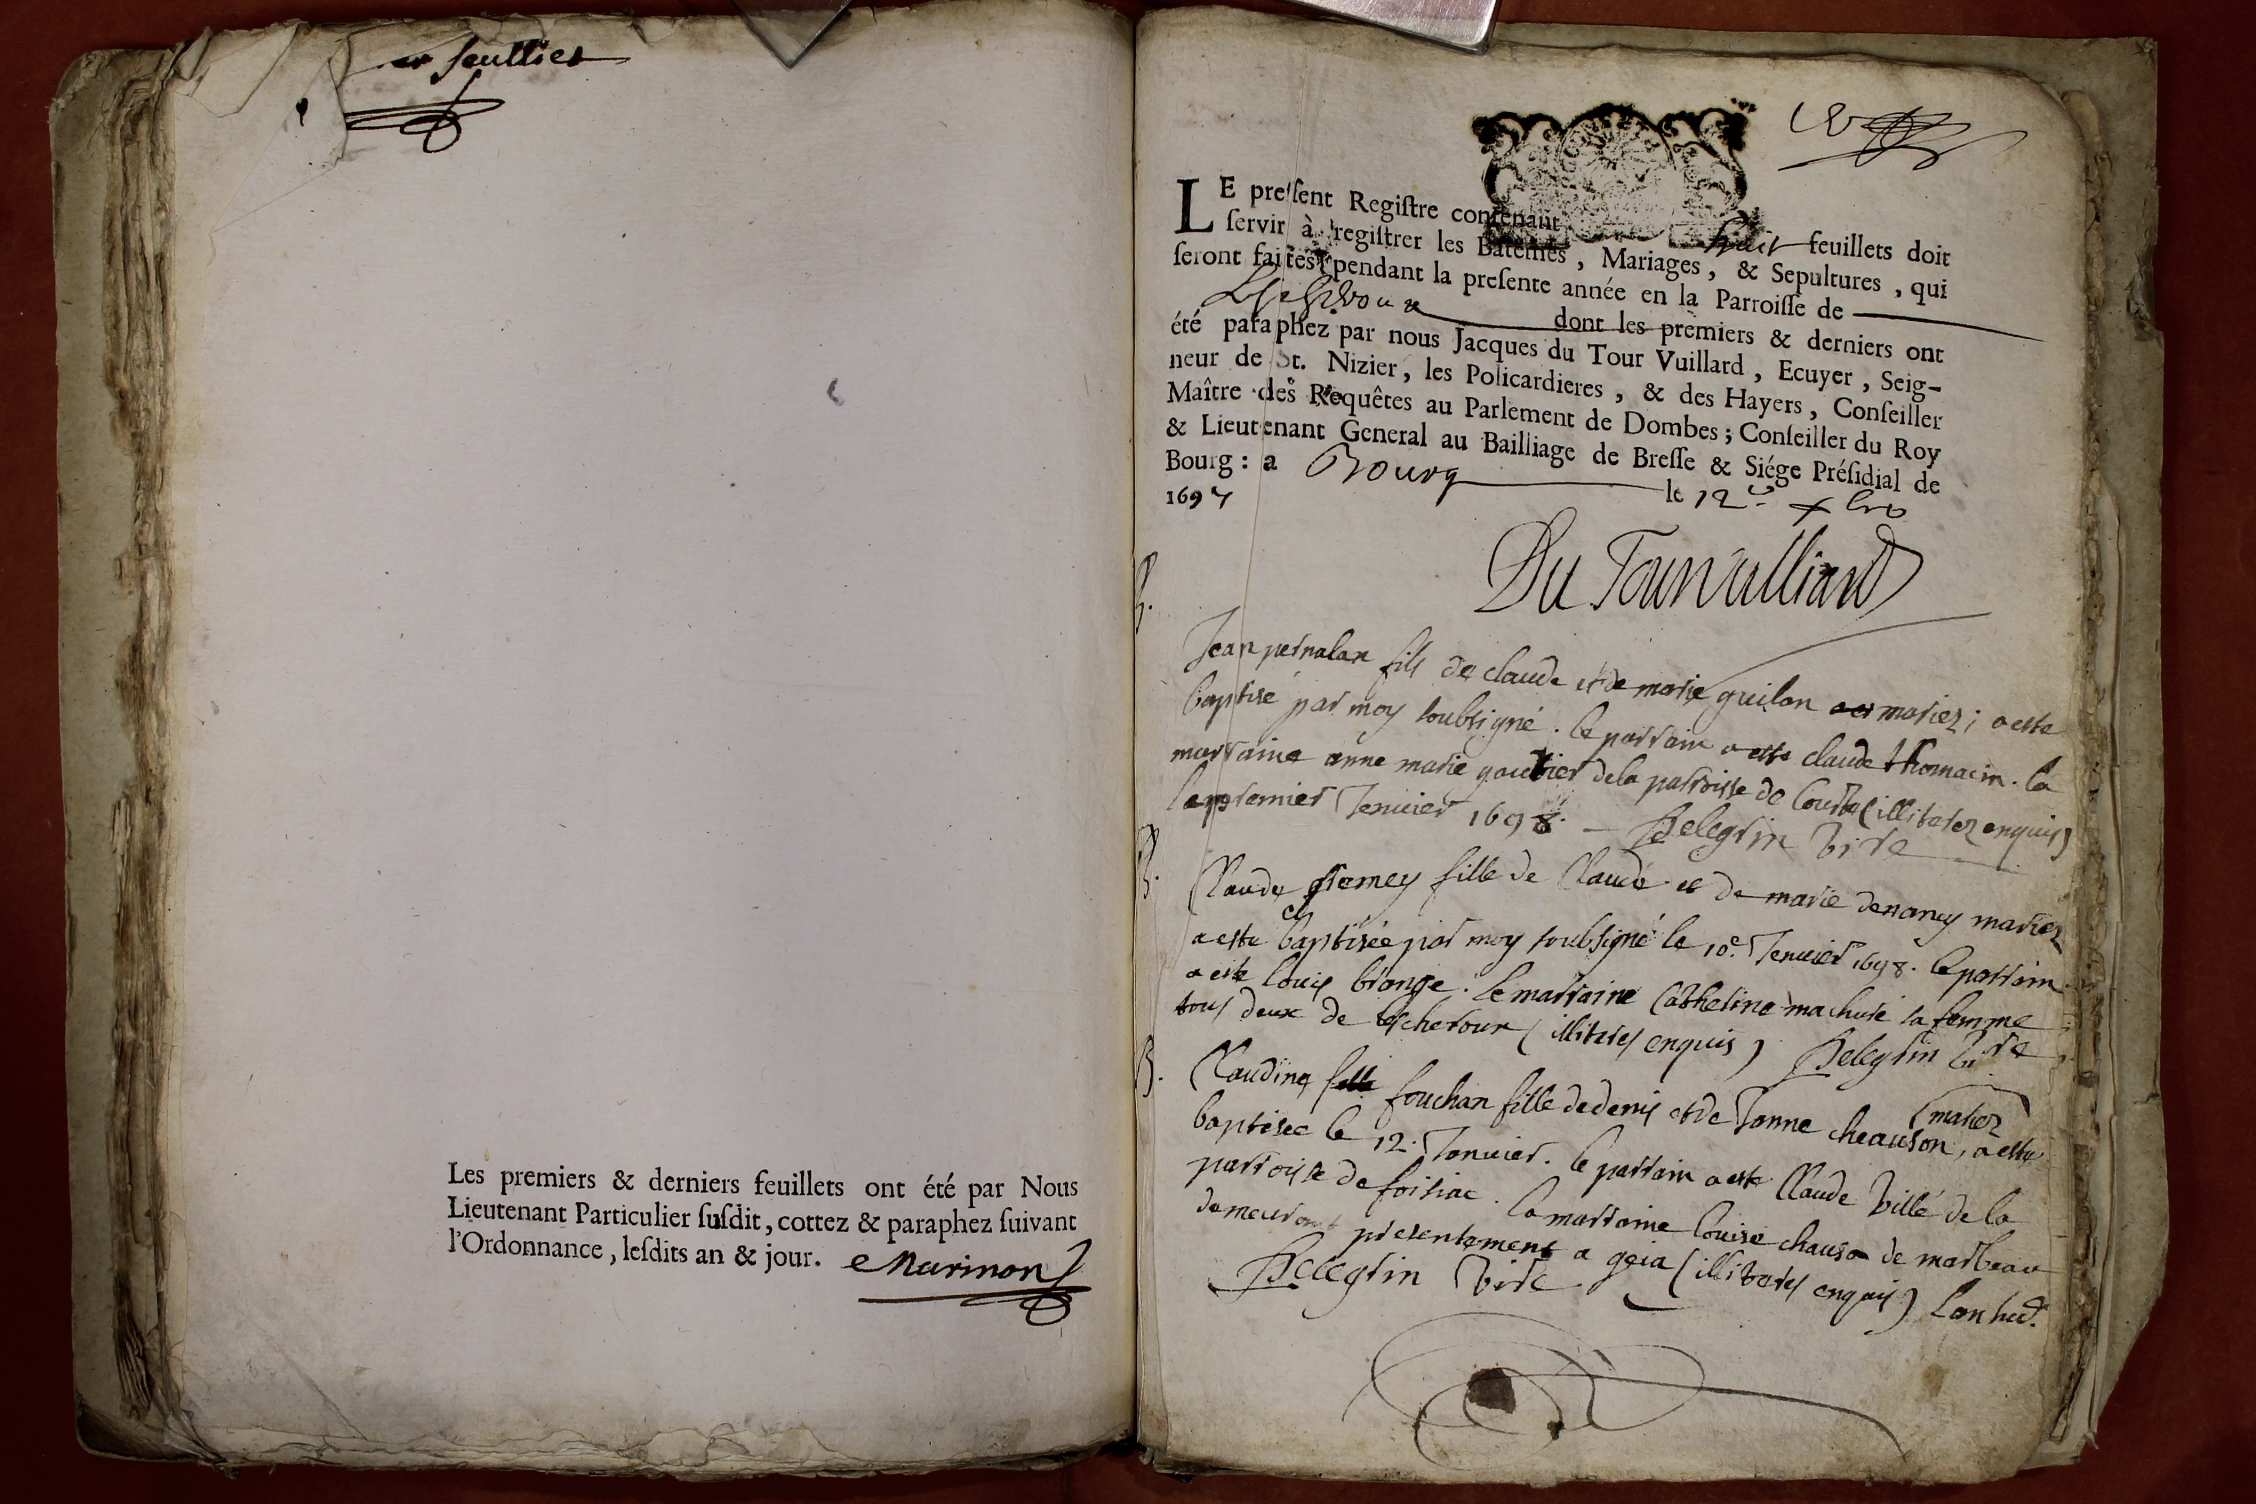 feuillet
Les premiers & derniers feuillets ont été par Nous
Lieutenant Particulier ſuſdit, cottez & paraphez ſuivant
l'Ordonnance, leſdits an & jour. Marinon
LE preſent Regiſtre contenant huit feuillets doit
ſervir à regiſtrer les Batêmes, Mariages, & Sepultures, qui
ſeront faites pendant la preſente année en la Parroiſſe de
Lescheroux dont les premiers & derniers ont
été paraphez par nous Jacques du Tour Vuillard, Ecuyer, Seig-
neur de St. Nizier, les Policardieres, & des Hayers, Conſeiller
Maître des Requêtes au Parlement de Dombes; Conſeiller du Roy
& Lieutenant General au Bailliage de Breſſe & Siége Préſidial de
Bourg: a Bourg le 12e xbre
1697
Du Tourvulliard
B.
Jean pernalan fils de claude et de marie guilon mariez; a esté
baptisé par moy soubsigné. le parrain a esté claude thomacin. la
marraine anne marie gautier de la parroisse de (illiterez enquis)
le premier Jenvier 1698. Pelegrin vire
B.
Claude fille de Claude et de marie denancy mariez
a esté baptisée par moy soubsigné le 10e. Jenvier 1698. le parrain
a esté louis brange. le marraine Catheline machuré sa femme
tous deux de lescheroux (illiteres enquis) Pelegrin vire
B.
Claudine fouchan fille de denis et de Janne cheauson, mariez a esté
baptisée le 12. Janvier. le parrain a esté Claude villé de la
parroisse de foisiac. la marraine louise chauson de marbeau
demeurant presentement a geia (illiteres enquis)
Pelegrin vire